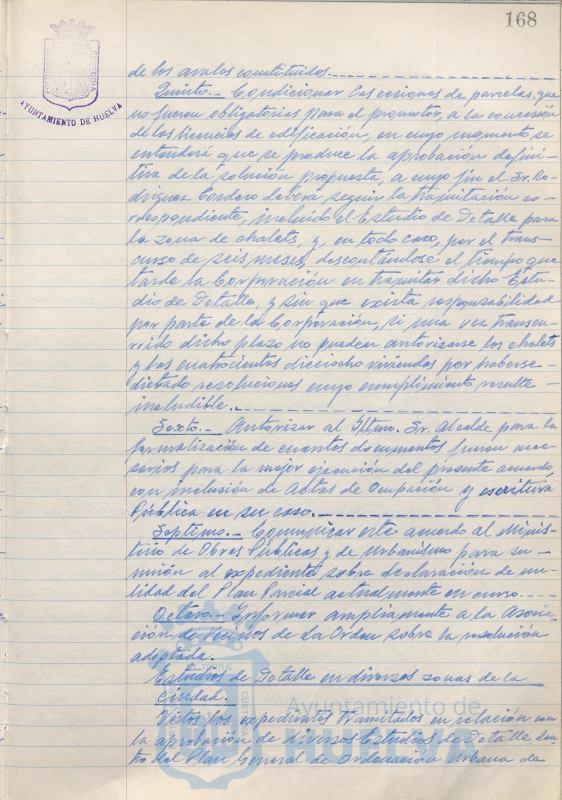 168
AYUNTAMIENTO DE HUELVA
de los avales constituidos.
Quinto.- Condicionar las cesiones de parcelas, que
no fueren obligatorias para el promotor, a la concesión
de las licencias de edificación, en cuyo momento, se
entenderá que se produce la aprobación defini-
tiva de la solución propuesta, a cuyo fin el Sr. Ro-
dríguez Cordero deberá seguir la tramitación co-
rrespondiente, incluido el Estudio de Detalle para
la zona de chalets, y, en todo caso, por el trans-
curso de seis meses, descontándose el tiempo que
tarde la Corporación en tramitar dicho Estu-
dio de Detalle, y sin que exista responsabilidad
por parte de la Corporación, si una vez transcu-
rrido dicho plazo no puedan autorizarse los chalets
y las cuatrocientas dieciocho viviendas por haberse
dictado resoluciones cuyo cumplimiento resulte
ineludible.
Sexto.- Autorizar al Iltmo. Sr. Alcalde para la
formalización de cuantos documentos fueren nece-
sarios para la mejor ejecución del presente acuerdo,
con inclusión de Actas de Ocupación y escritura
Pública en su caso.
Septimo.- Comunicar este acuerdo al Minis-
terio de Obras Públicas y de Urbanismo para su
unión al expediente sobre declaración de nu-
lidad del Plan Parcial actualmente en curso.
Octavo.- Informar ampliamente a la Asocia-
ción de Vecinos de La Orden sobre la resolución
adoptada.
Estudios de Detalle en diversas zonas de la
Ciudad.
Vistos los expedientes tramitados en relación con
la aprobación de diversos Estudios de Detalle, den-
tro del Plan General de Ordenación Urbana de
Ayuntamiento de
HUELVA